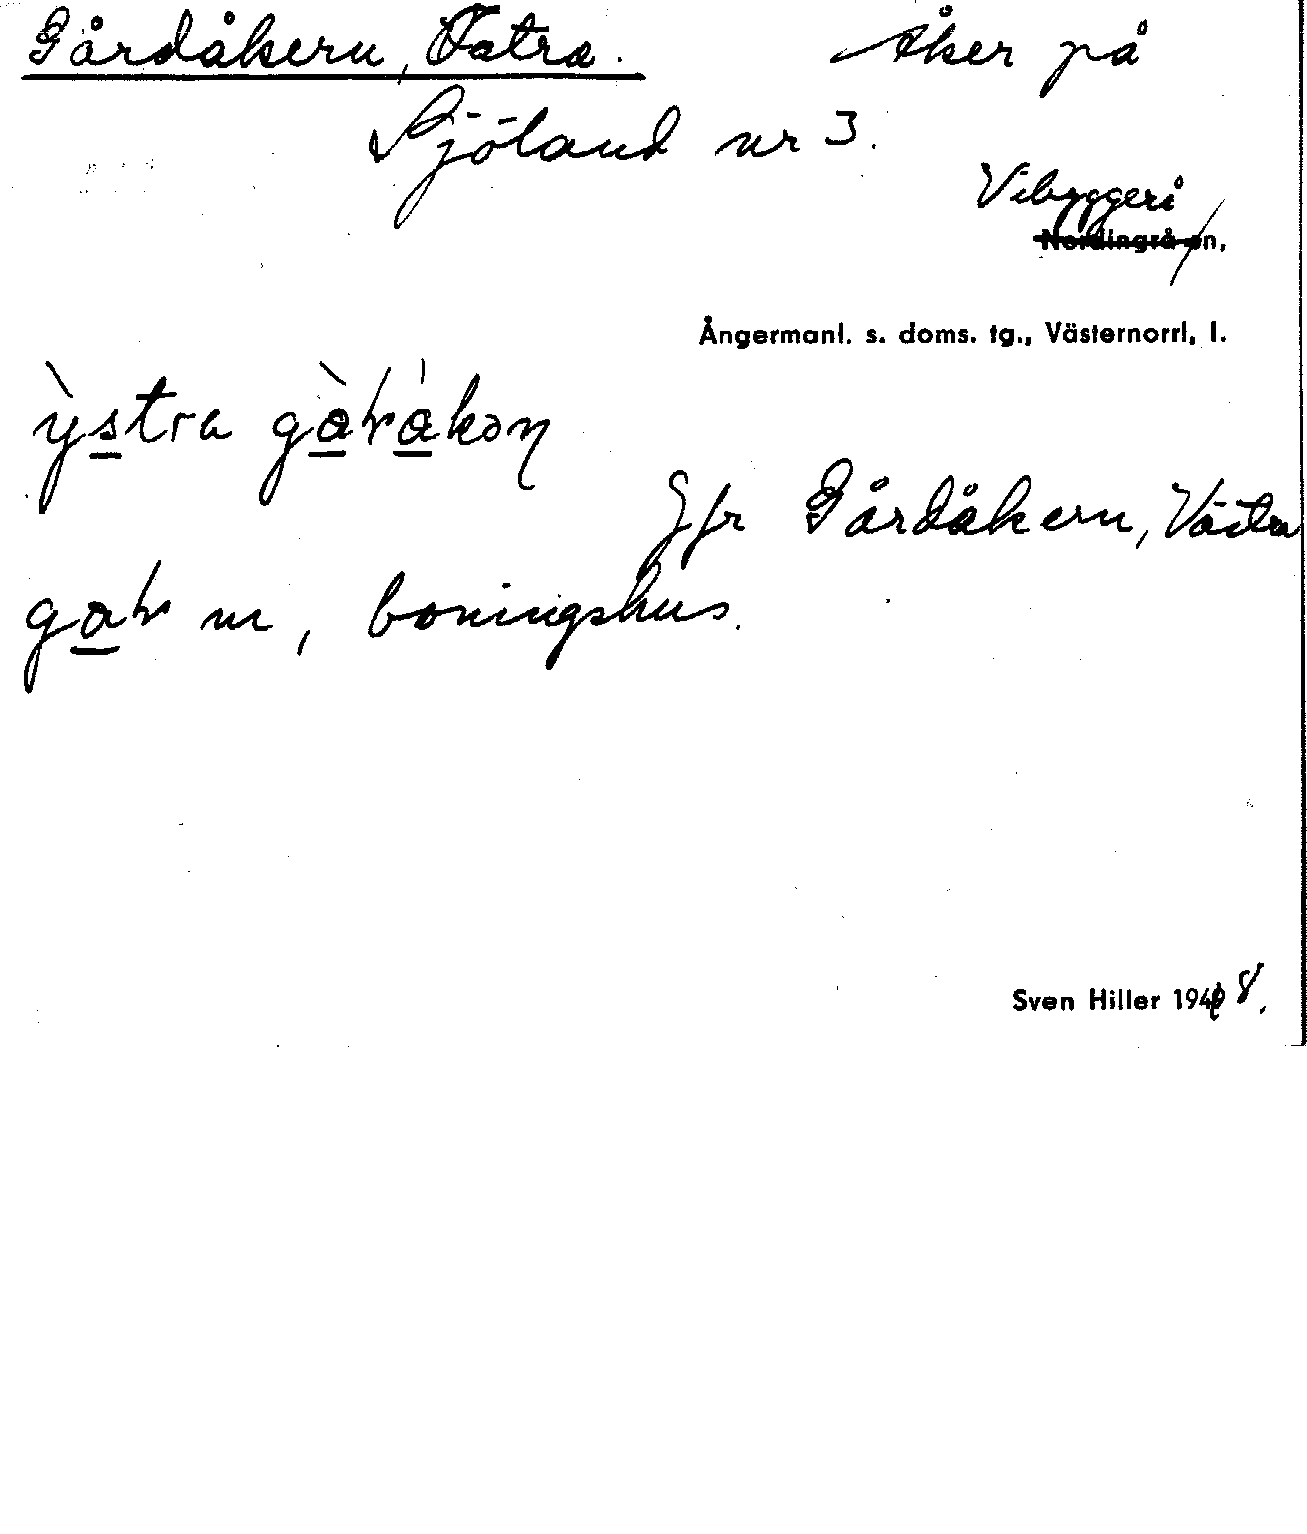 Gårdåkern, Östra. Åker på
Sjöland nr 3.
Vibyggerå
Nordingrå sn,
Ångermanl. s. doms. tg., Västernorrl, l.
Jfr Gårdåkern, Västra
m, boningshus.
Sven Hiller 194 8.